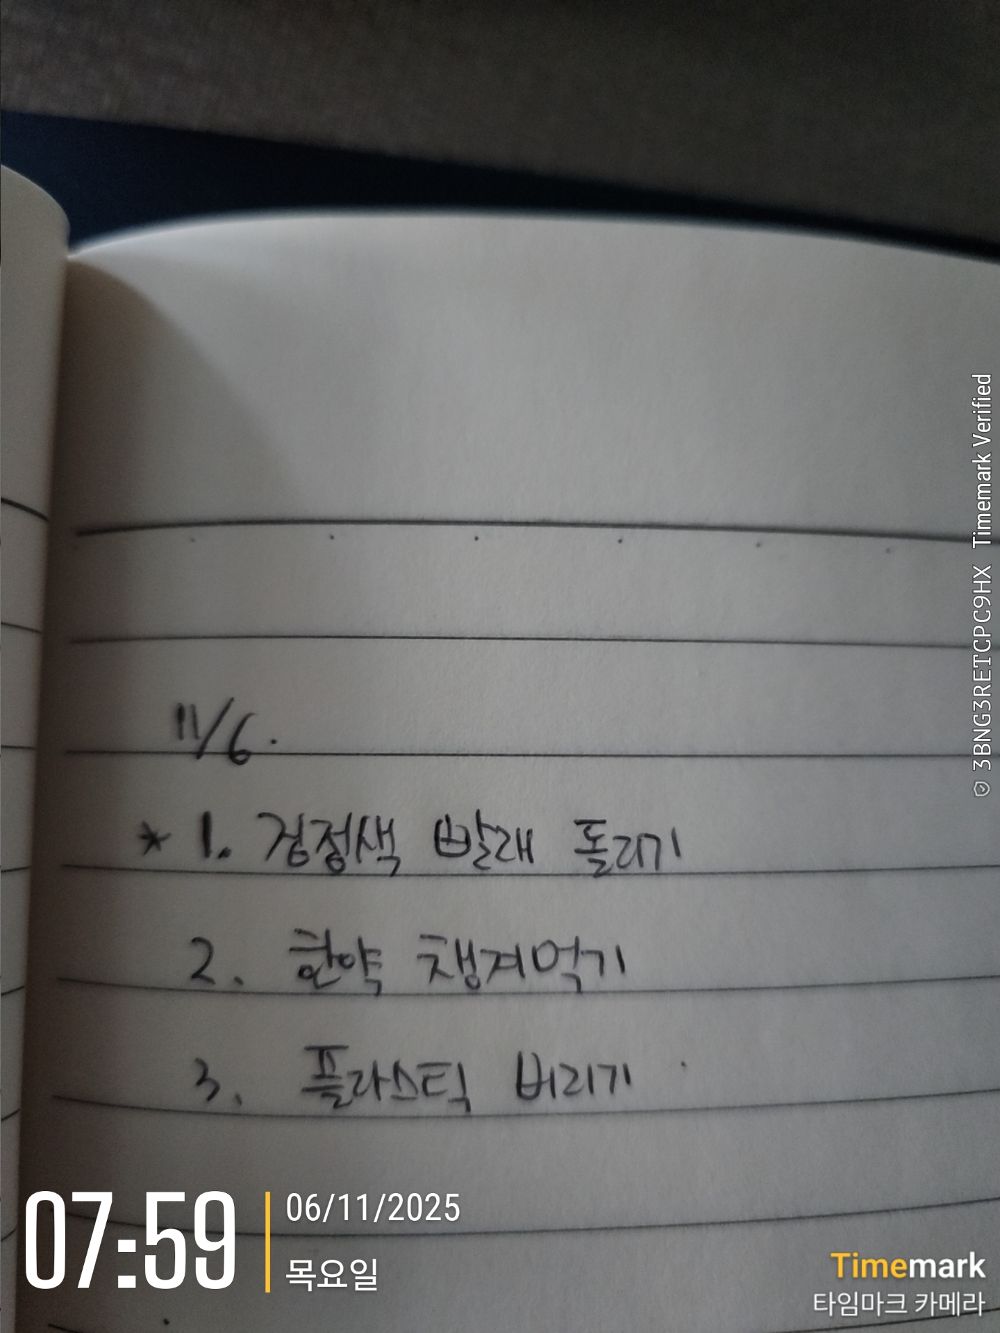 11/6.
* 1. 검정색 빨래 돌리기
2. 한약 챙겨먹기
3. 플라스틱 버리기
07:59
06/11/2025
목요일
Timemark
타임마크 카메라
3BNG3RETCPC9HX Timemark Verified